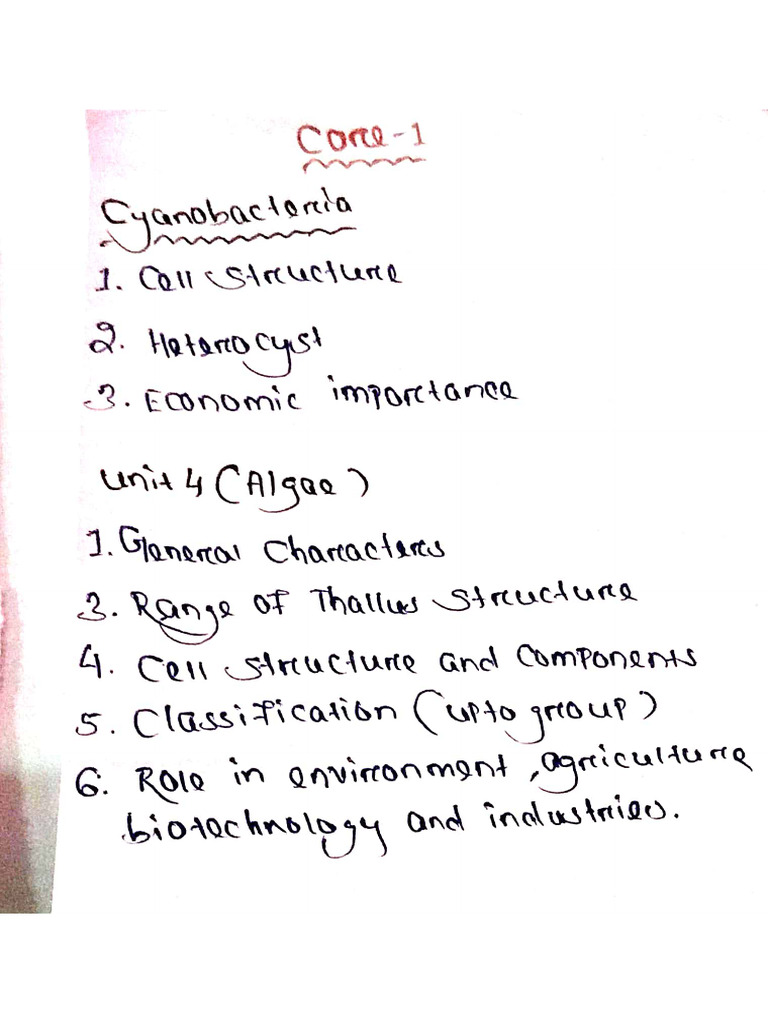 Core-1
Cyanobacteria
1. Cell structure
2. Heterocyst
3. Economic importance
Unit 4 (Algae)
1. General Characters
3. Range of Thallus structure
4. Cell structure and components
5. Classification (upto group)
6. Role in environment, agriculture
biotechnology and industries.